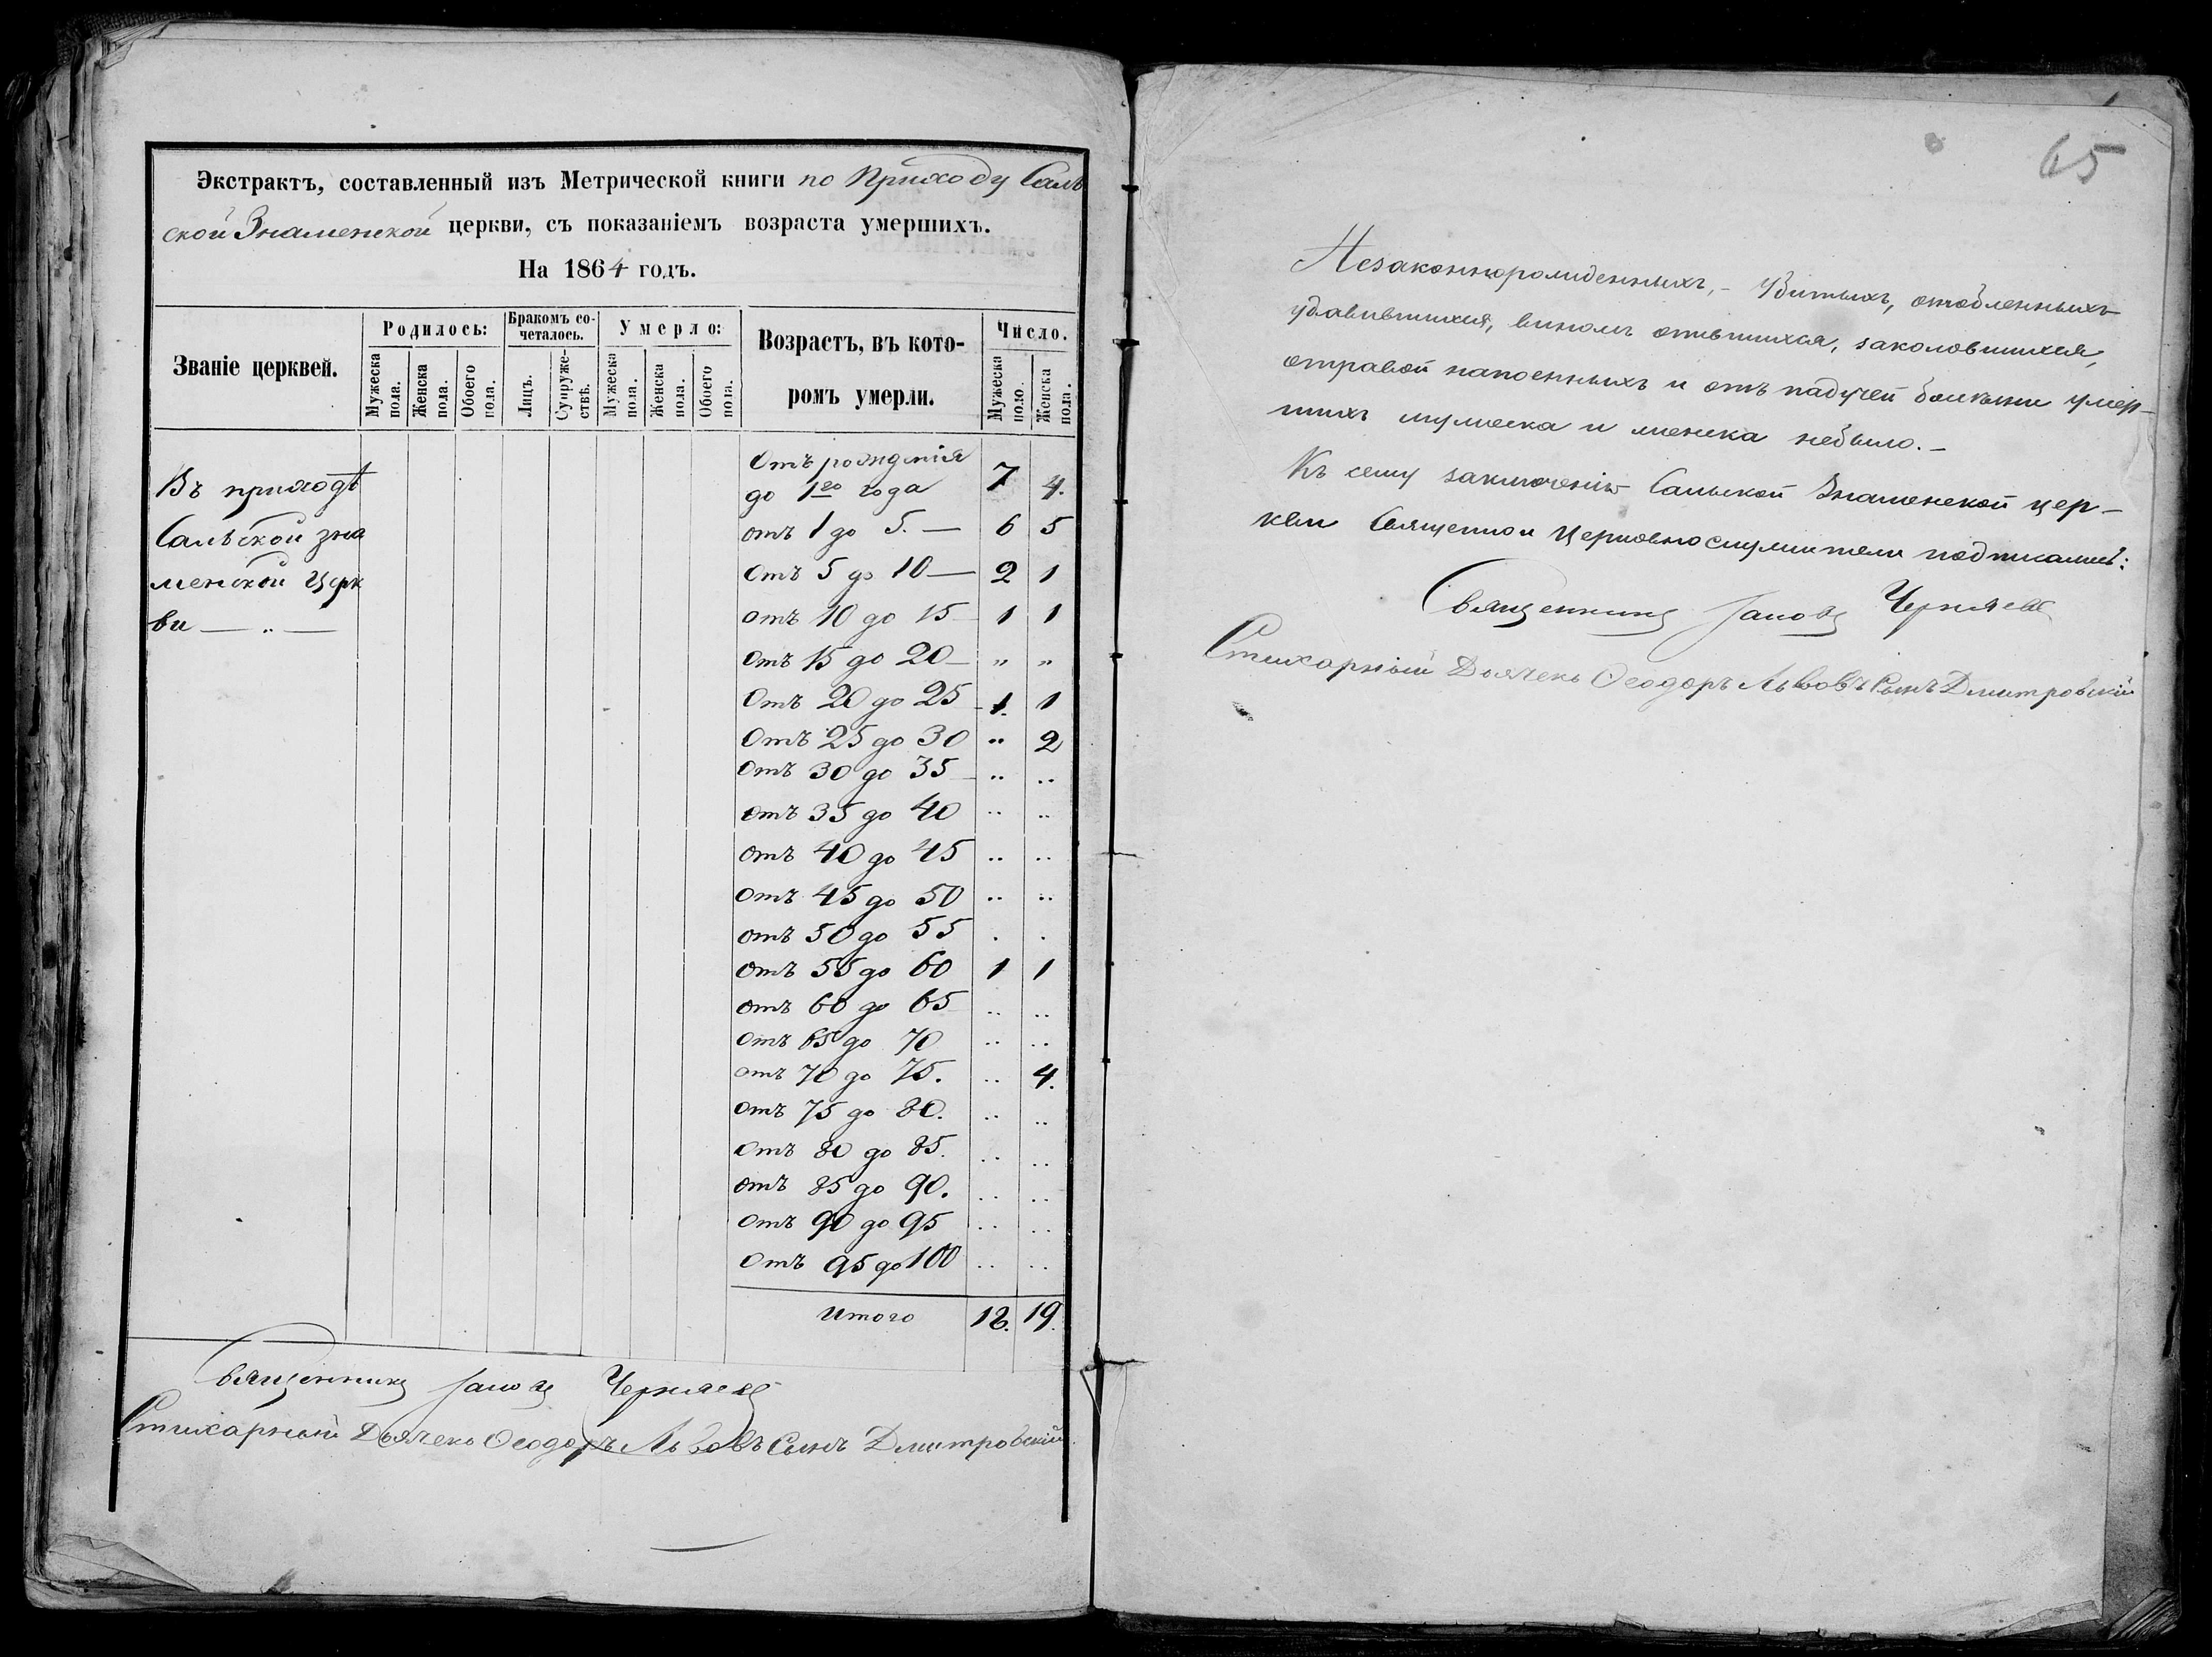 Экстрактъ, составленный изъ Метрической книги по Приходу Саль
ской Знаменской церкви, съ показаніемъ возраста умершихъ.
На 1864 годъ.
Званіе церквей.
Родилось:
Бракомъ со-
четалось.
Умерло:
Возрастъ, въ кото-
ромъ умерли.
Число.
Мужеска пола.
Женска пола.
Обоего пола.
Лицъ.
Супруже-
ствъ.
Мужеска пола.
Женска пола.
Обоего пола.
Мужеска поло.
Женска пола.
Въ приходѣ
Сальской зна
менской Церк
ви — „ —
Отъ рожденія
до 1го года 7 4.
отъ 1 до 5. — 6 5
Отъ 5 до 10 — 2 1
отъ 10 до 15 — 1 1
Отъ 15 до 20 — „ „
Отъ 20 до 25 — 1. 1
Отъ 25 до 30 „ 2
Отъ 30 до 35 — „ „
отъ 35 до 40 „ „
отъ 40 до 45 „ „
отъ 45 до 50 „ „
отъ 50 до 55 . .
отъ 55 до 60 1 1
отъ 60 до 65 „ „
отъ 65 до 70 „ „
отъ 70 до 75. „ 4.
отъ 75 до 80. „ „
Отъ 80 до 85. „ „
отъ 85 до 90. „ „
отъ 90 до 95 „ „
Отъ 95 до 100 „ „
Итого 18. 19.
Священникъ Іаковъ Черняевъ
Стихарный Дьячекъ Ѳеодоръ Львовъ Сынъ Дмитровскій
65
Незаконнорожденныхъ, – Убитыхъ,
удавившихся, виномъ опившихся, заколовшихся,
отравой напоенныхъ и отъ падучей болезни умер-
шихъ мужеска и женска небыло. –
Къ сему заключенію Сальской Знаменской цер-
кви Священно и Церковнослужители подписались:
Священникъ Іаковъ Черняевъ
Стихарный Дьячекъ Ѳеодоръ Львовъ Сынъ Дмитровскій